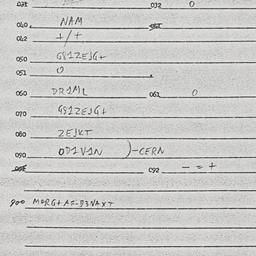 031 032 0
040. NAM
042 +/+
050 GS1ZEJG+
051 0
060 DR1ML 061 0
070 GS1ZEJG+
080 ZEJKT
090 OD1V1N )-CERN
092 - = +
900 MORG+AF-D3NAXT